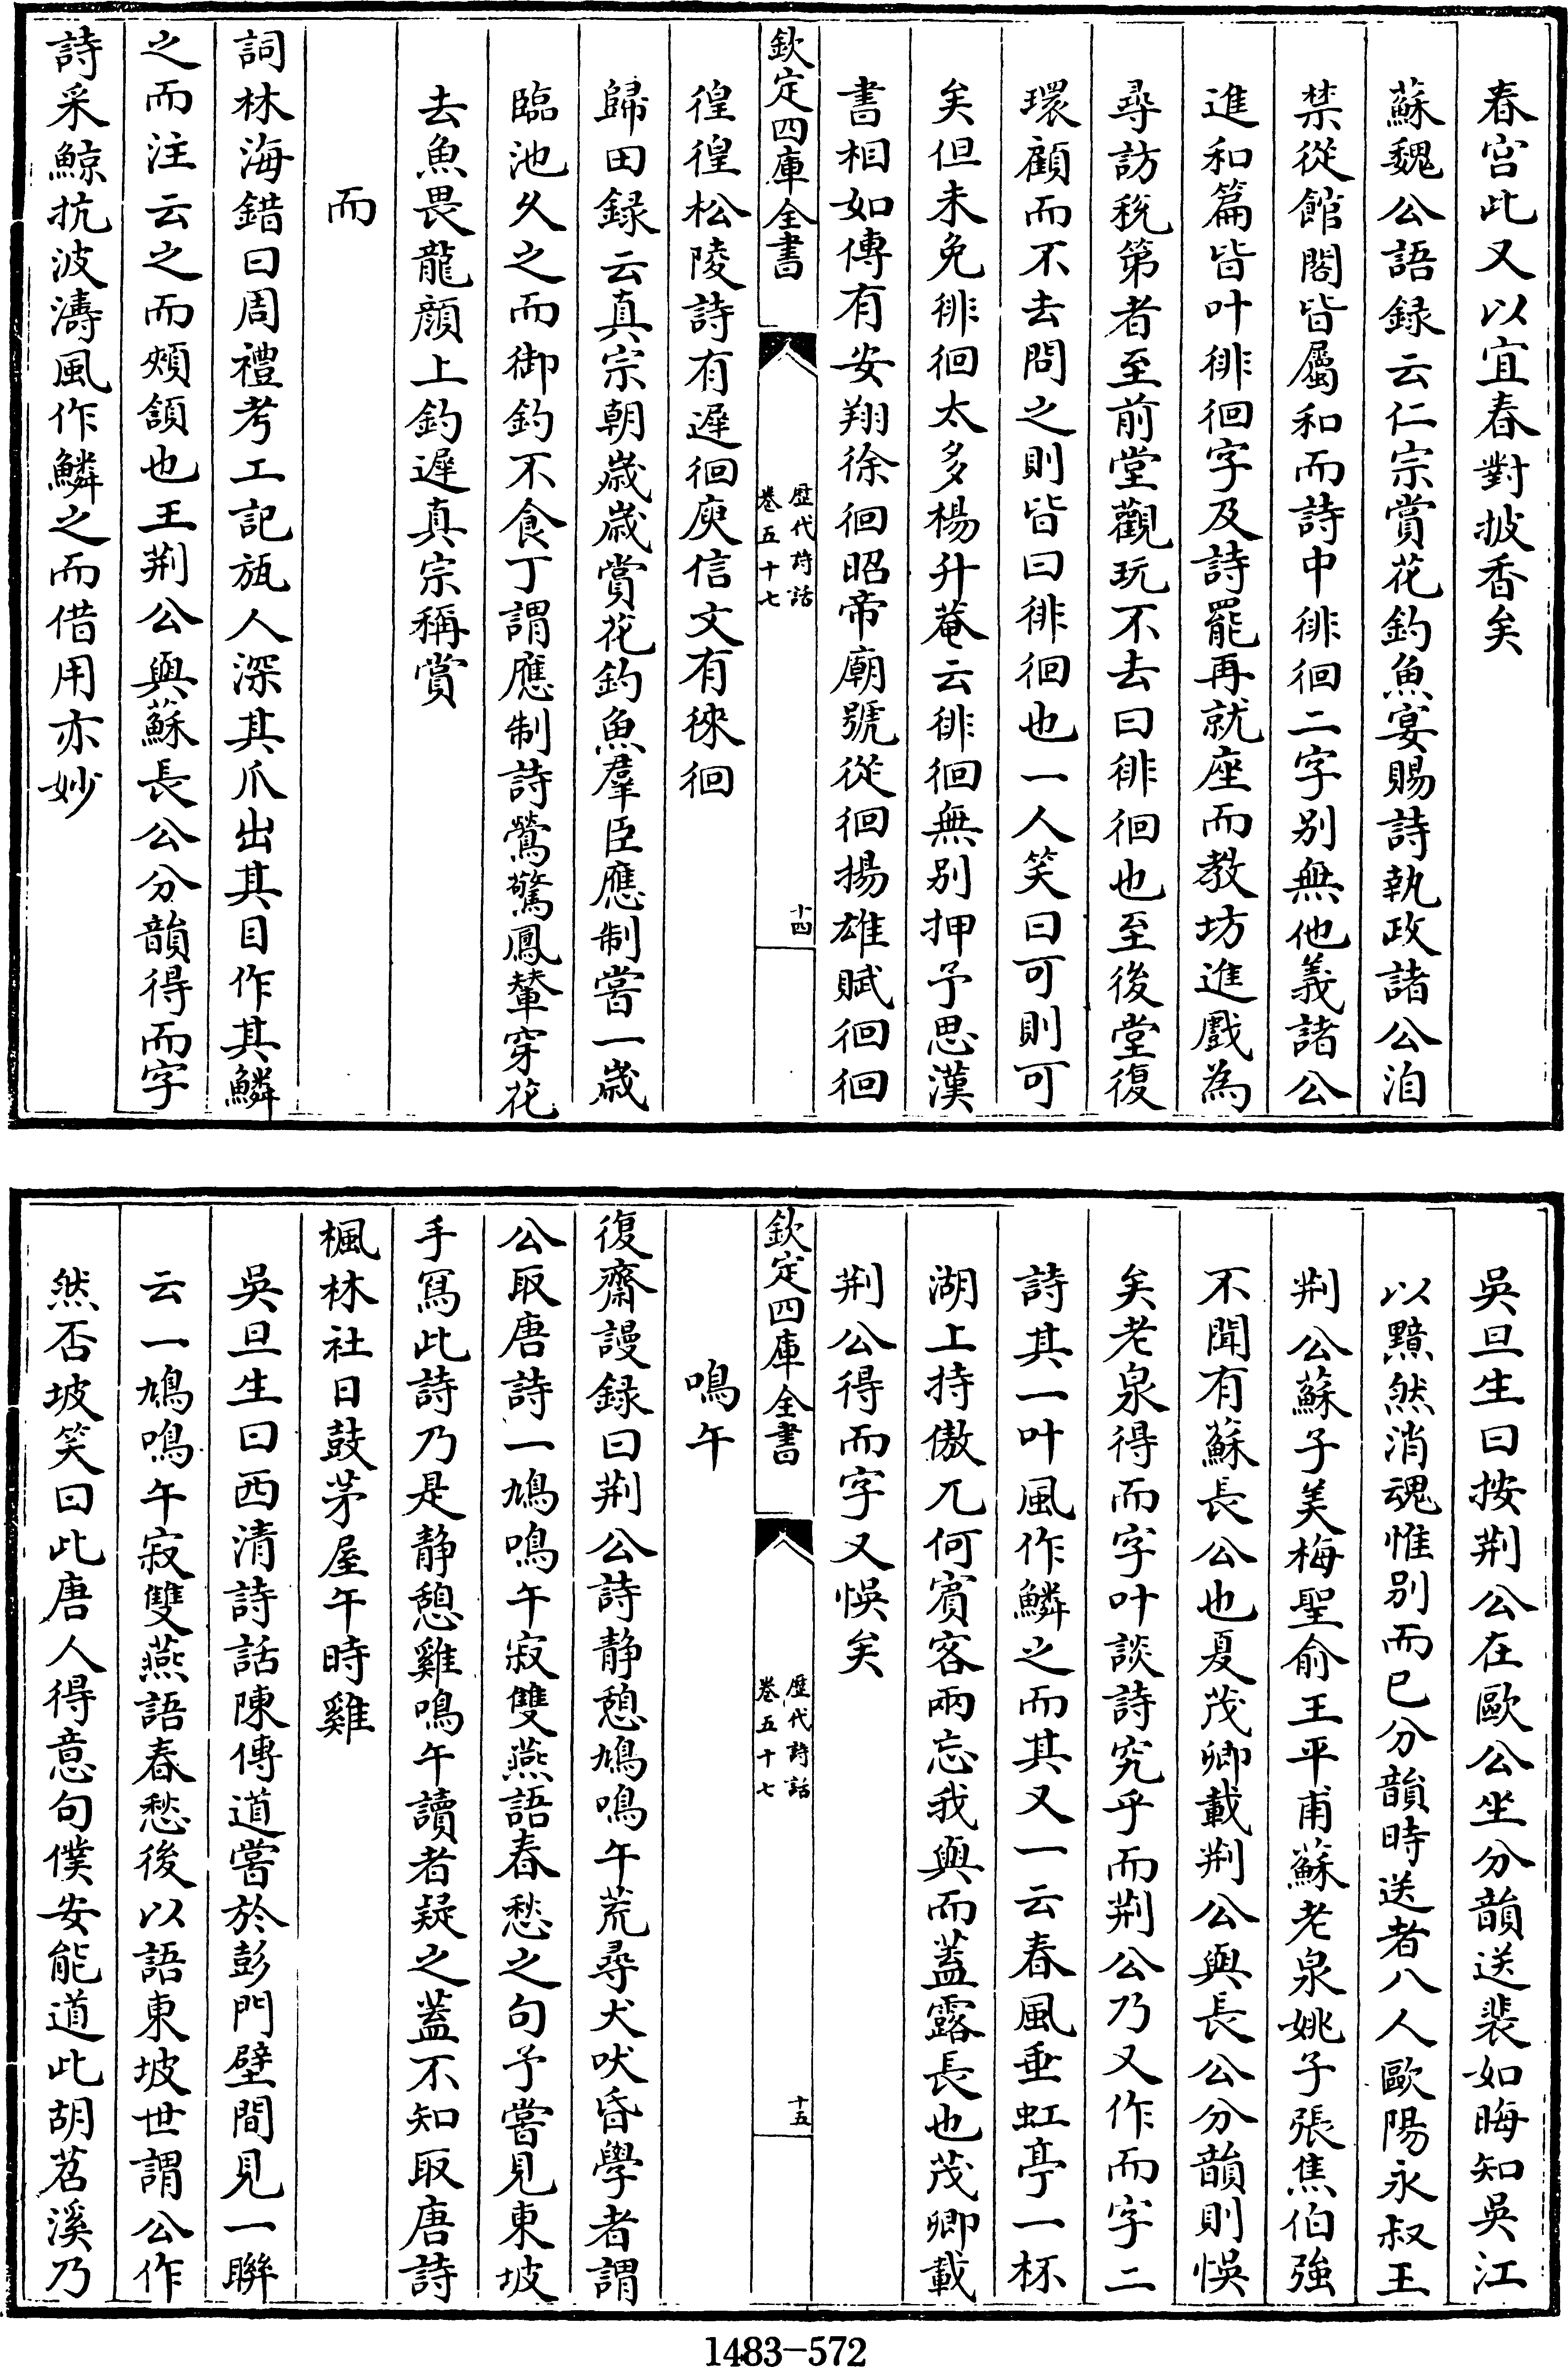 春宫此又以宜春對披香矣
蘇魏公語録云仁宗賞花釣魚宴賜詩執政諸公洎
禁從館閣皆屬和而詩中徘徊二字别無他義諸公
進和篇皆叶徘徊字及詩罷再就座而教坊進戲為
尋訪税第者至前堂觀玩不去曰徘徊也至後堂復
環顧而不去問之則皆曰徘徊也一人笑曰可則可
矣但未免徘徊太多楊升菴云徘徊無别押予思漢
書相如傳有安翔徐徊昭帝廟號從徊揚雄賦徊徊
欽定四庫全書
歴代詩話
卷五十七
十四
徨徨松陵詩有遲徊庾信文有徠徊
歸田録云真宗朝歲歲賞花釣魚羣臣應制嘗一歲
臨池久之而御釣不食丁謂應制詩鶯驚鳳輦穿花
去魚畏龍顔上釣遲真宗稱賞
而
詞林海錯曰周禮考工記瓬人深其爪出其目作其鱗
之而注云之而頰頷也王荆公與蘇長公分韻得而字
詩采鯨抗波濤風作鱗之而借用亦妙
吳旦生曰按荆公在歐公坐分韻送裴如晦知吳江
以黯然消魂惟别而已分韻時送者八人歐陽永叔王
荆公蘇子美梅聖俞王平甫蘇老泉姚子張焦伯強
不聞有蘇長公也夏茂卿載荆公與長公分韻則悞
矣老泉得而字叶談詩究乎而荆公乃又作而字二
詩其一叶風作鱗之而其又一云春風垂虹亭一杯
湖上持傲兀何賓客兩忘我與而蓋露長也茂卿載
荆公得而字又悞矣
欽定四庫全書
歴代詩話
卷五十七
十五
鳴午
復齋謾録曰荆公詩静憩鳩鳴午荒尋犬吠昏學者謂
公取唐詩一鳩鳴午寂雙燕語春愁之句予嘗見東坡
手寫此詩乃是静憩雞鳴午讀者疑之蓋不知取唐詩
楓林社日鼓茅屋午時雞
吳旦生曰西清詩話陳傳道嘗於彭門壁間見一聯
云一鳩鳴午寂雙燕語春愁後以語東坡世謂公作
然否坡笑曰此唐人得意句僕安能道此胡苕溪乃
1483-572